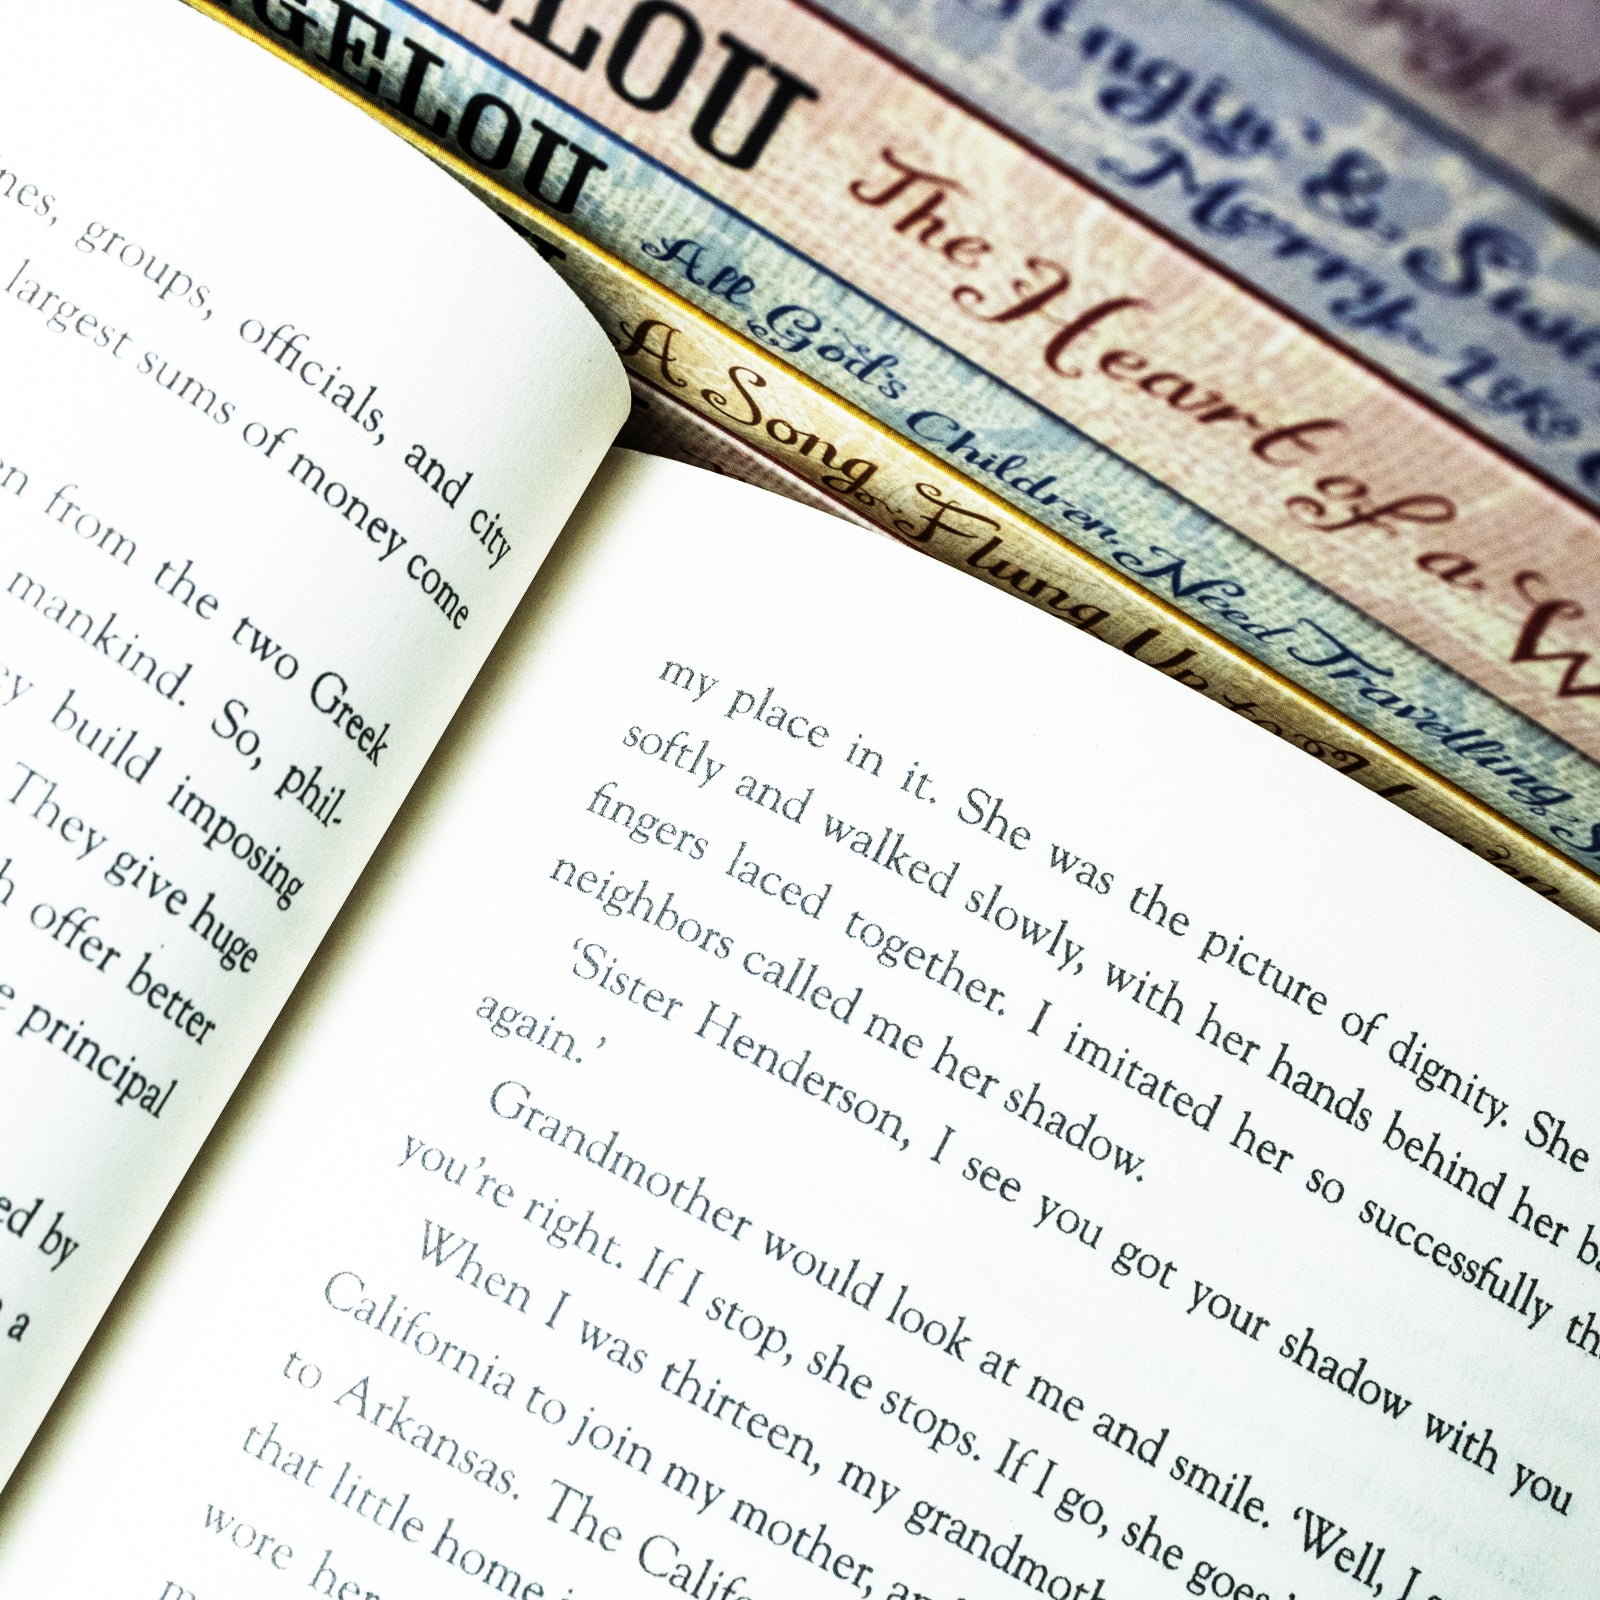 GELOU
LLOU
The Heart of a W
ingin' & Swi
Merry Like
All God's Children Need Travelling S
A Song Flung Up to
nes, groups, officials, and city
largest sums of money come
en from the two Greek
mankind. So, phil-
ey build imposing
They give huge
h offer better
e principal
ed by
a
my place in it. She was the picture of dignity. She
softly and walked slowly, with her hands behind her ba
fingers laced together. I imitated her so successfully th
neighbors called me her shadow.
‘Sister Henderson, I see you got your shadow with you
again.’
Grandmother would look at me and smile. ‘Well, I
you’re right. If I stop, she stops. If I go, she goes
When I was thirteen, my grandmoth
California to join my mother, an
to Arkansas. The Califo
that little home i
wore her
m